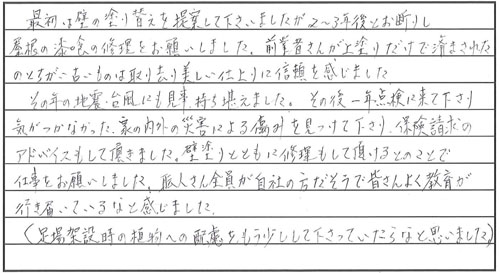 最初は壁の塗り替えを提案して下さいましたが2〜3年後とお断りし
屋根の漆喰の修理をお願いしました。前業者さんが上塗りだけで済まされた
のとちがい古いものは取り去り美しい仕上りに信頼を感じました
その年の地震・台風にも見事持ち堪えました。その後一年点検に来て下さり
気がつかなかった家の内外の災害による傷みを見つけて下さり、保険請求の
アドバイスもして頂きました。壁塗りとともに修理もして頂けるとのことで
仕事をお願いしました。職人さん全員が自社の方だそうで皆さんよく教育が
行き届いているなと感じました。
(足場架設時の植物への配慮をもう少しして下さっていたらなと思いました)